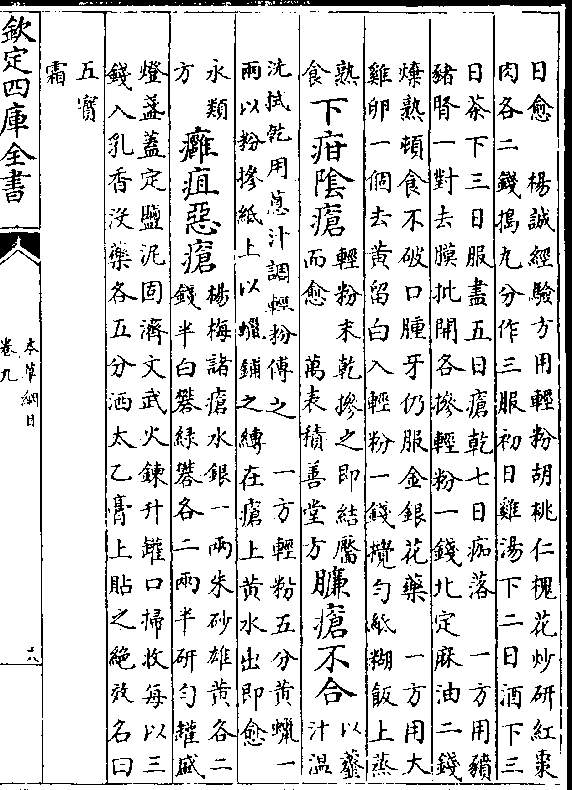 日愈　楊誠經驗方用輕粉胡桃仁槐花炒研紅棗
肉各二錢搗丸分作三服初日雞湯下二日酒下三
日茶下三日服盡五日瘡乾七日痂落　一方用豶
豬腎一對去膜批開各摻輕粉一錢扎定麻油二錢
煠熟頓食不破口腫牙仍服金銀花藥　一方用大
雞卵一個去黄留白入輕粉一錢攪勻紙糊飯上蒸
熟
食
下疳陰瘡
輕粉末乾摻之即結靨
而愈　萬表積善堂方
臁瘡不合
以虀
汁温
洗拭乾用葱汁調輕粉傅之　一方輕粉五分黄蠟一
兩以粉摻紙上以蠟鋪之縛在瘡上黄水出即愈
永類
方
癰疽惡瘡
楊梅諸瘡水銀一兩朱砂雄黄各二
錢半白礬綠礬各二兩半研勻罐盛
燈盞蓋定鹽泥固濟文武火鍊升罐口掃收每以三
錢入乳香没藥各五分洒太乙膏上貼之絶效名曰
五寳
霜
欽定四庫全書
本草綱目
卷九
十八